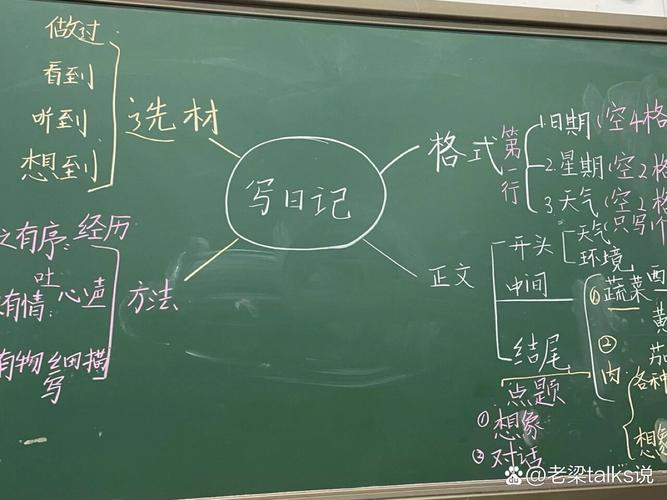 写日记
选材
做过
看到
听到
想到
方法
之有序：经历
有情：吐心声
有物 细描写
格式
第一行
1日期(空4格
2.星期(空2格
3.天气(空2格
只写个
正文
开头
天气
环境
中间
①蔬菜
黄
②肉
各种
想象
结尾
点题
①想象
②对话
@老梁talks说